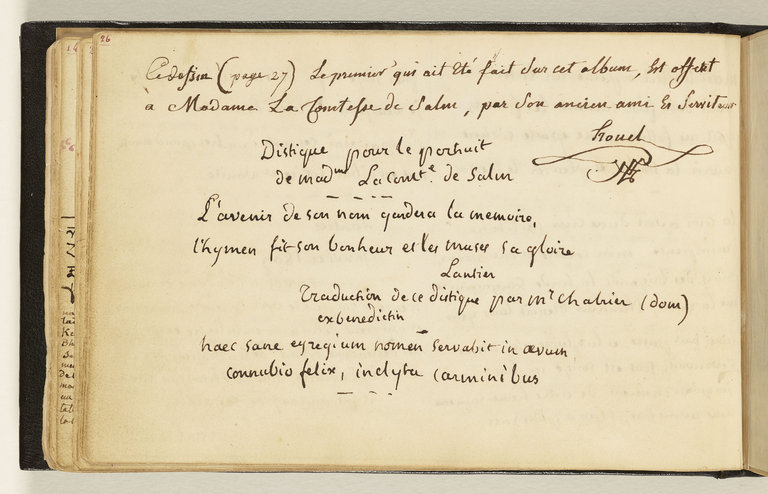 26
Ce dessin (page 27) Le premier qui ait été fait sur cet album, est offert
à Madame La Comtesse de Salm, par son ancien ami Et Serviteur
houel
Distique pour le portrait
de mad^me La comt^e. de Salm
L'avenir de son nom gardera la memoire,
l'hymen fit son bonheur et les muses sa gloire
Lantier
Traduction de ce distique par m^r chabrier (dom)
exbenedictin
haec sane egregium nomen servabit in ævum
connubio felix, inclyta carminibus